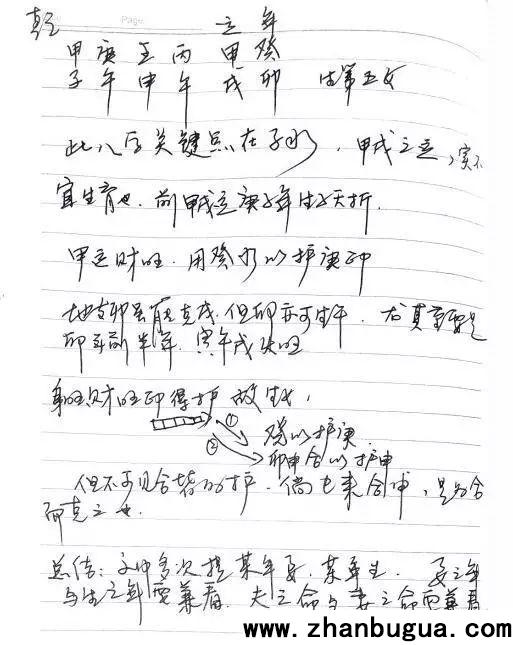 Page.
运 年
甲 庚 壬 丙 甲 癸
子 午 申 午 戌 卯 生第五女
此八字关键点在子水，甲戌之运，实不
宜生育也．前甲戌运庚子年生子夭折．
甲运财旺．用癸水以护庚印
地支卯虽能克戌．但卯亦可生午．尤其重要是
即前半年．寅午戌火旺
身旺财旺印得护 故生女，
① 癸以护庚
② 卯申合以护申
但不可见合皆为护．倘巳来合申，是为合
而克之也．
总结：文中多次提某年娶．某年生． 娶之年
与生之年要兼看．夫之命与妻之命要兼看
www.zhanbugua.com